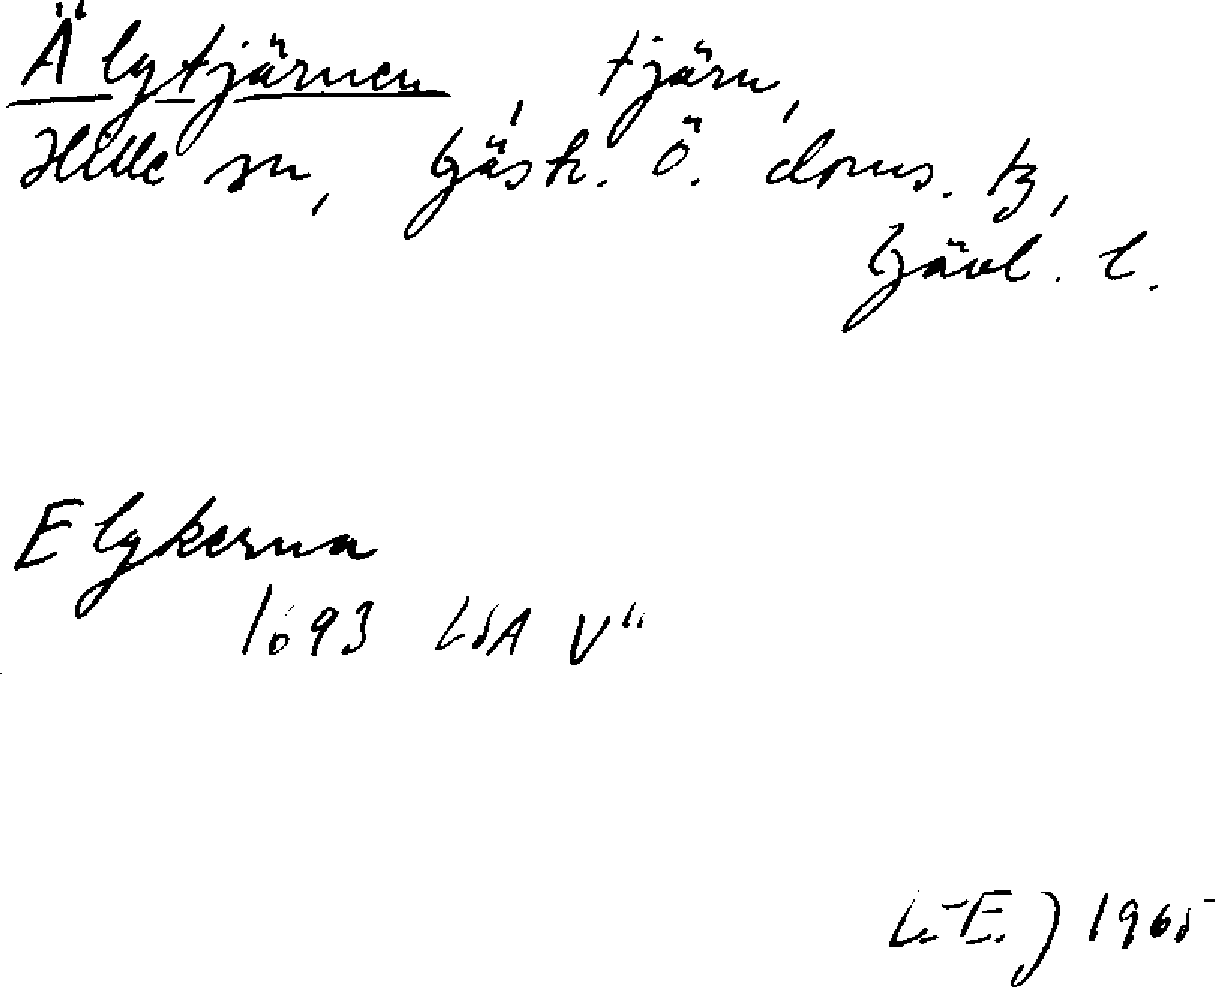 Älgtjärnen, tjärn,
Hille sn, Gästr. Ö. doms. tg,
Gävl. l.
Elgkerna
1693 LSA V"
L-E. J 1965